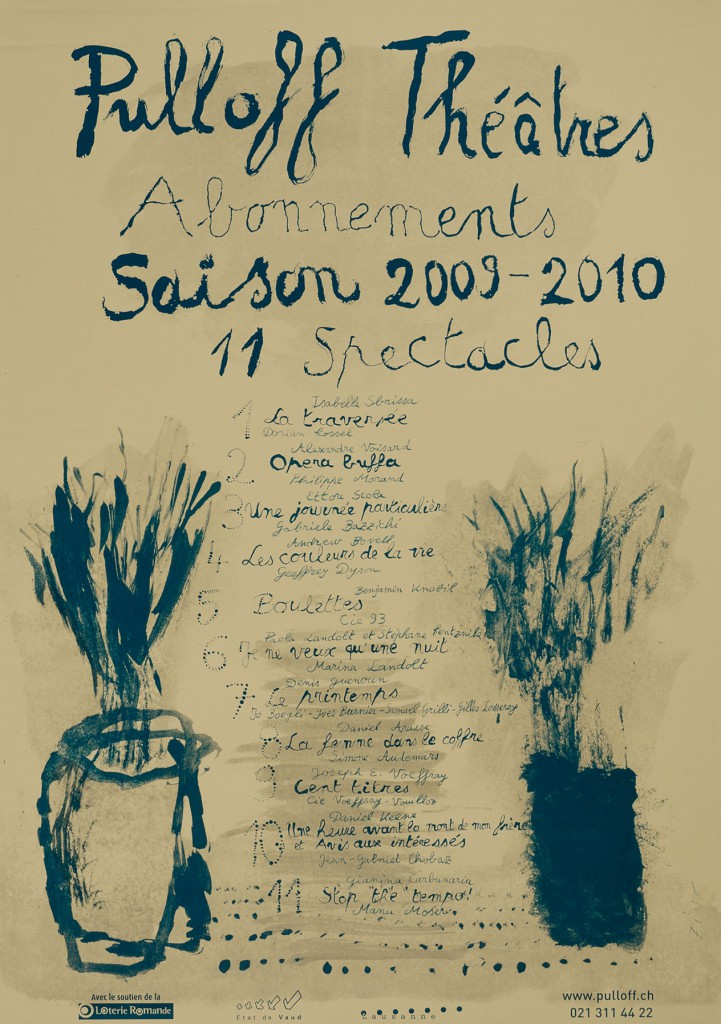 Pulloff Théâtres
Abonnements
Saison 2009-2010
11 Spectacles
Isabelle Sbrissa
1 La traversée
Dorian Rossel
Alexandre Voisard
2 Opera buffa
Philippe Morand
Ettore Scola
3 Une journée particulière
Gabriele Bazzichi
Andrew Bovell
4 Les couleurs de la vie
Geoffrey Dyson
Benjamin Knobil
5 Boulettes
Cie 93
Paola Landolt et Stéphane
6 Je ne veux qu'une nuit
Marina Landolt
Denis Guenoun
7 Le printemps
Jo Boegli - Yves Burnier - Samuel Grilli - Gilles
Daniel
8 La femme dans le coffre
Simone Audemars
Joseph E. Voeffray
9 Cent titres
Cie Voeffray-Vouilloz
Daniel Keene
10 Une heure avant la mort de mon frère
et Avis aux intéressés
Jean-Gabriel Chobaz
Gianina Carbunariu
11 Stop "the" tempo!
Manu Moser
Avec le soutien de la
Loterie Romande
Etat de Vaud
Lausanne
www.pulloff.ch
021 311 44 22